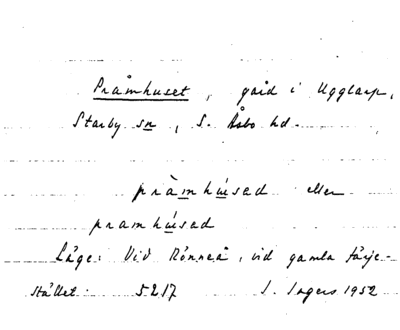 Pråmhuset, gård i Ugglarp,
Starby sn, S. Åsbo hd.
pràmhúsad eller
pramhúsad
Läge: Vid Rönneå, vid gamla färje-
stället. 5217 I. Ingers 1952